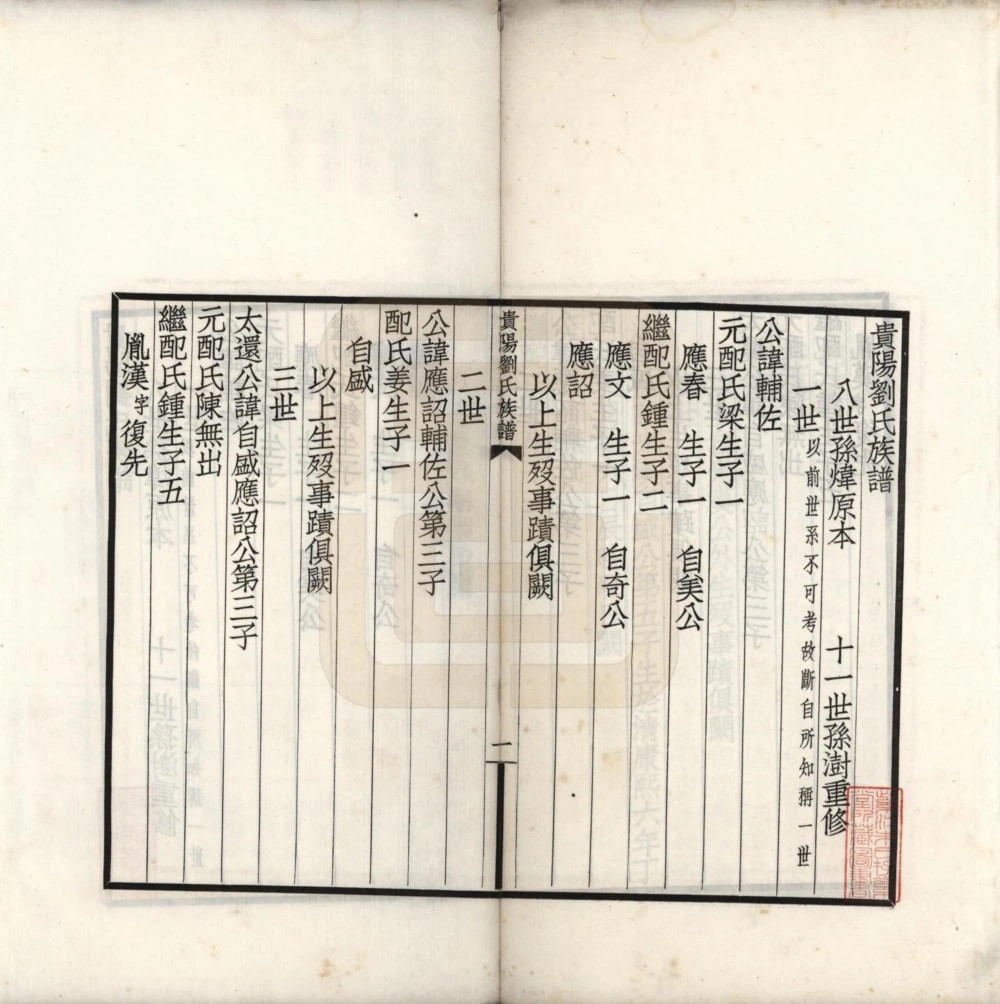 貴陽劉氏族譜
八世孫煒原本　十一世孫澍重修
一世以前世系不可考故斷自所知稱一世
公諱輔佐
元配氏梁生子一
應春　生子一　自美公
繼配氏鍾生子二
應文　生子一　自奇公
應詔
以上生歿事蹟俱闕
貴陽劉氏族譜　一
二世
公諱應詔輔佐公第三子
配氏姜生子一
自盛
以上生歿事蹟俱闕
三世
太還公諱自盛應詔公第三子
元配氏陳無出
繼配氏鍾生子五
胤漢字復先